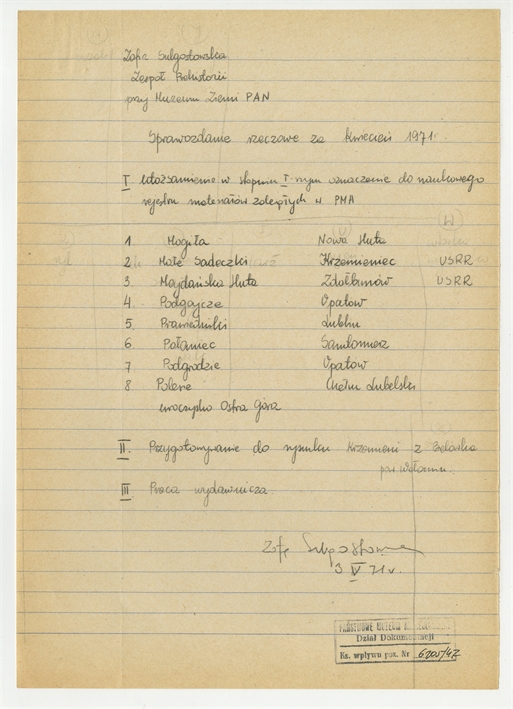 Zofia Sulgostowska
Zespół Prehistorii
przy Muzeum Ziemi PAN
Sprawozdanie rzeczowe za kwiecień 1971r
I w stopniu I-szym oznaczenie do naukowego
rejestru materiałów zaległych w PMA
1 Mogiła Nowa Huta
2 Małe Sadeczki Krzemieniec USRR
3 Majdańska Huta Zdołbunów USRR
4. Podgajcze Opatów
5 Lublin
6 Połaniec Sandomierz
7 Podgrodzie Opatów
8. Chełm Lubelski
uroczysko Ostra Góra
II. Przygotowywanie do rysunku krzemieni z
III Praca wydawnicza.
Zofia Sulgostowska
3 V 71r.
PAŃSTWOWE MUZEUM
Dział Dokumentacji
Ks. wpływu poz. Nr 6205/47